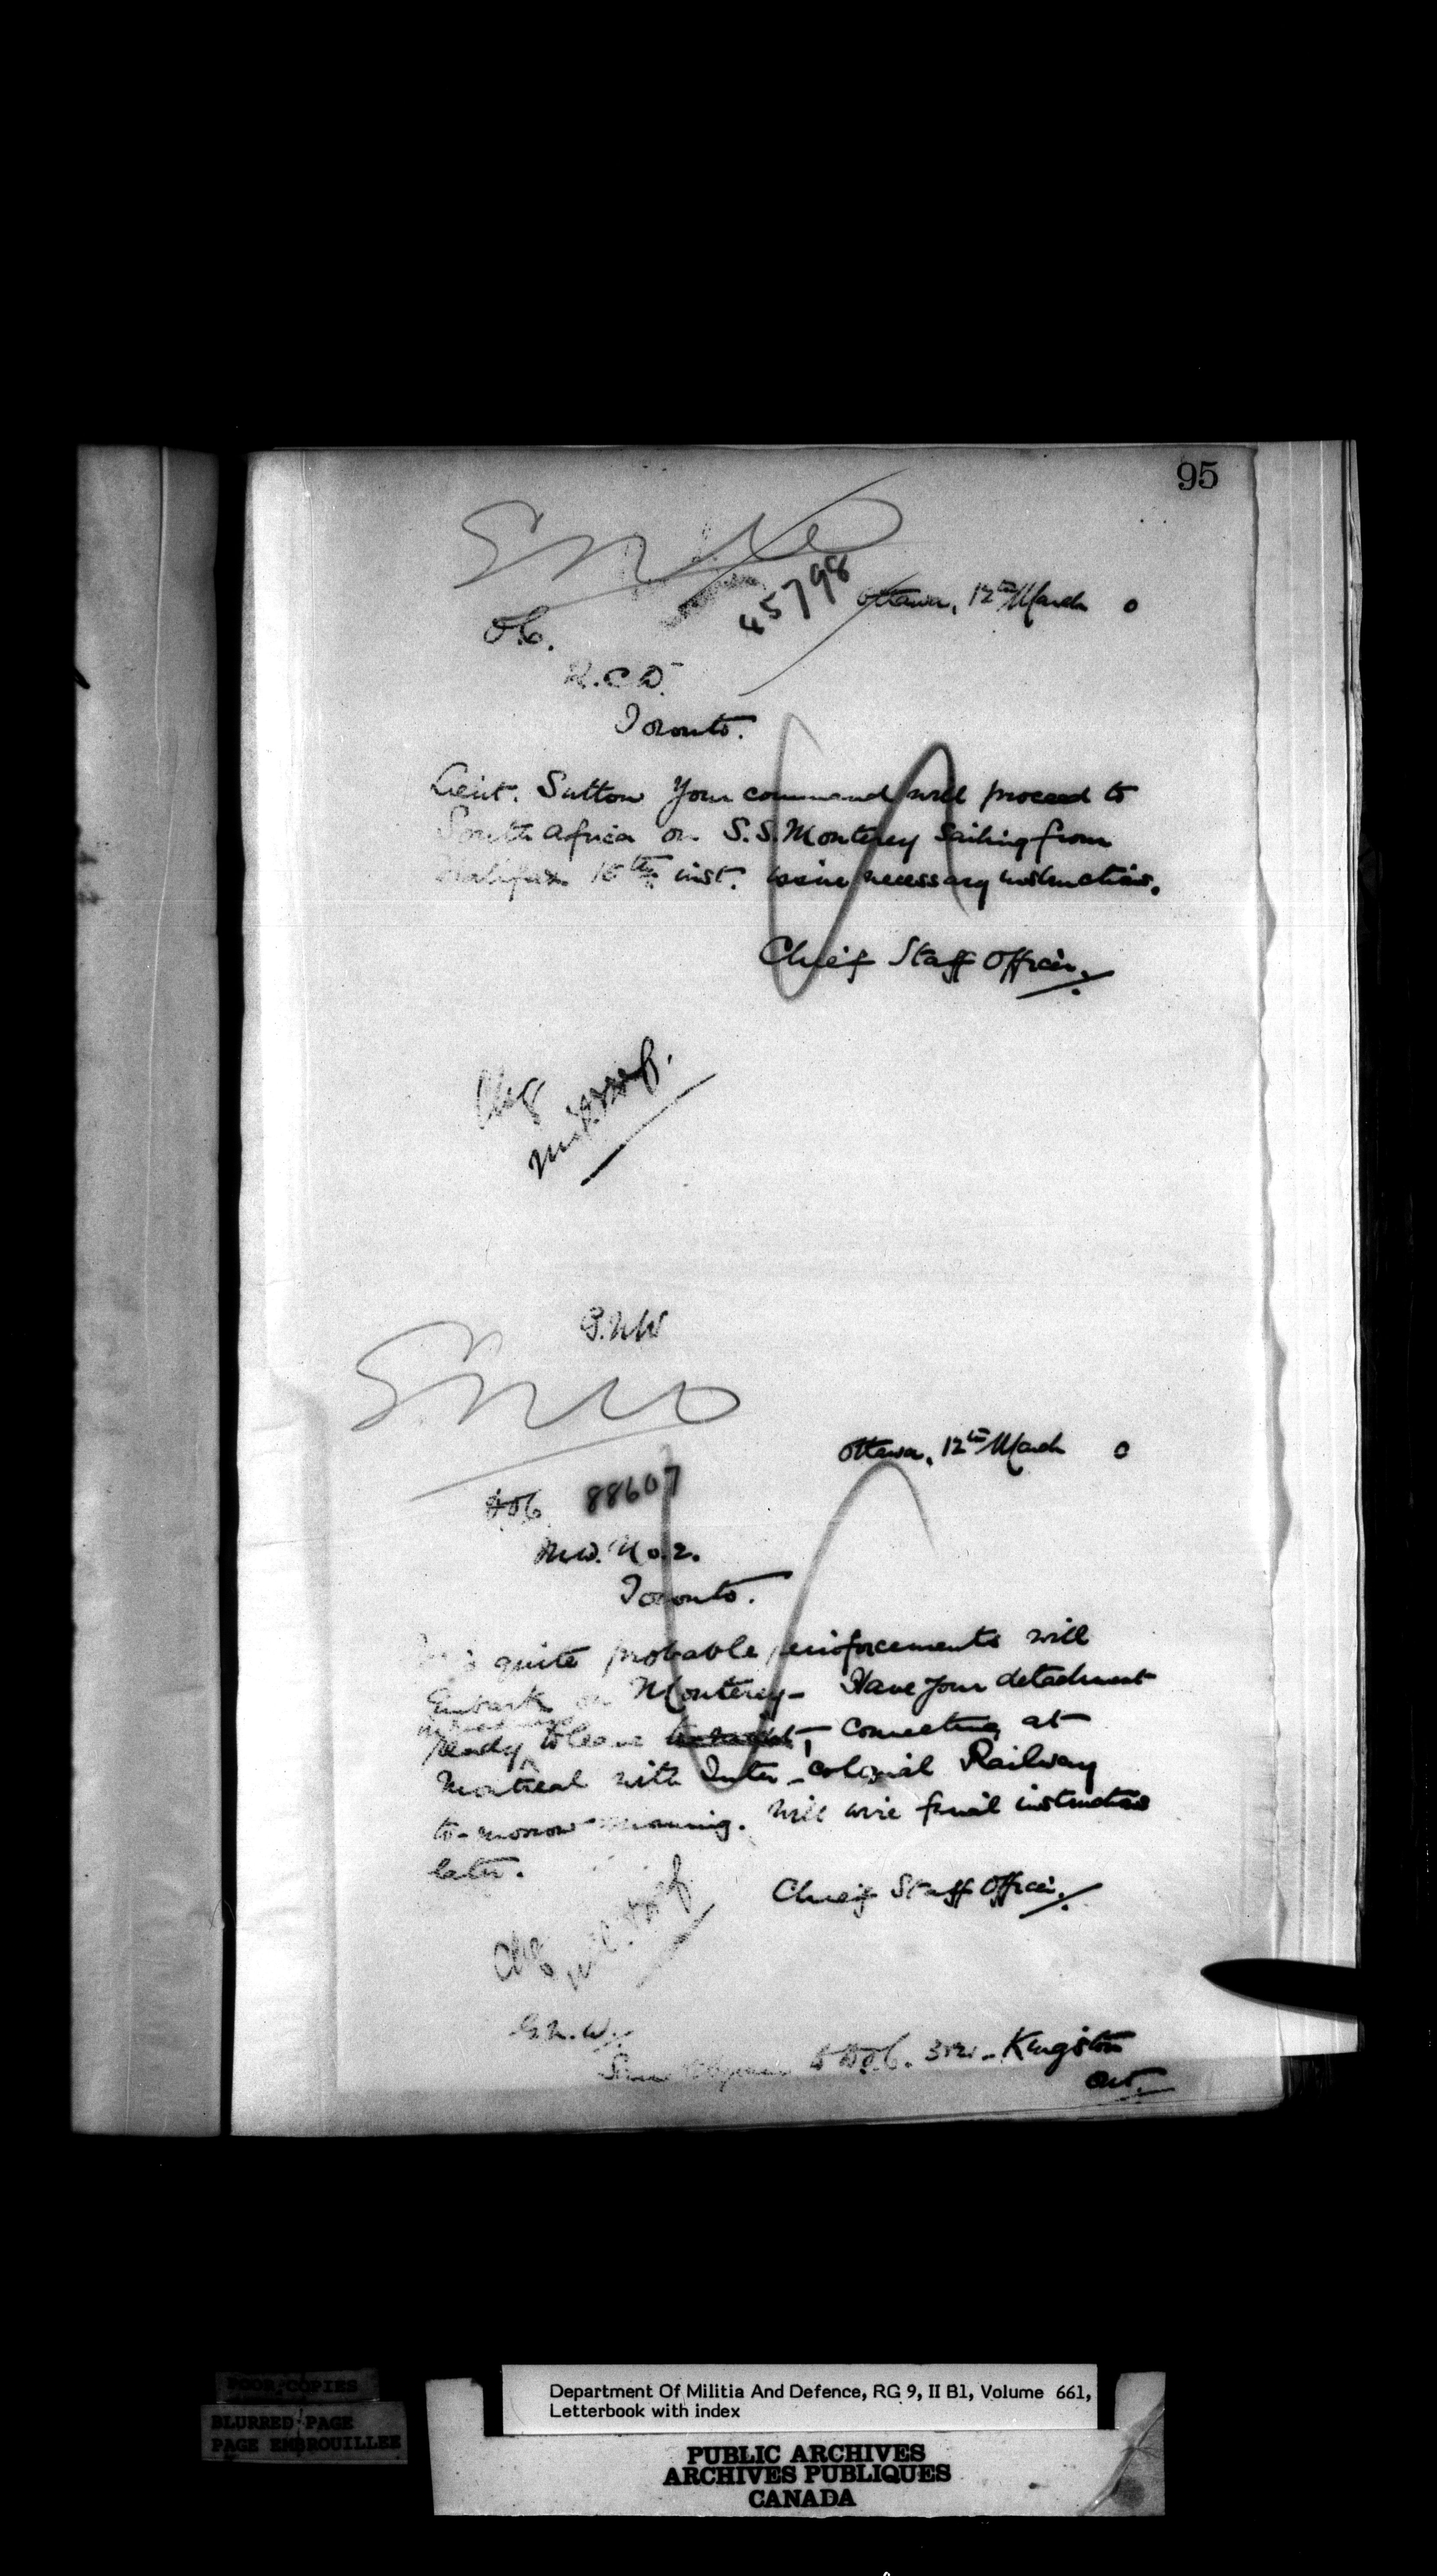 95
45798
Ottawa, 12th March 0
O.C.
R.C.D.
Toronto.
Lieut. Sutton your command will proceed to
South Africa on S.S. Monterey sailing from
Halifax 15th inst. Issue necessary instructions.
Chief Staff Officer.
Chg
G.N.W
Ottawa, 12th March 0
D.O.C. 88607
M.D. No. 2.
Toronto.
quite probable reinforcements will
Embark on Monterey - Have your detachment
ready to leave - connecting at
Montreal with Inter-colonial Railway
to-morrow morning. Will wire final instructions
later.
Chief Staff Officer.
Chg
G.N.W.
Same to D.O.C. 3 - Kingston
Ont.
POOR COPIES
BLURRED PAGE
PAGE EMBROUILLEE
Department Of Militia And Defence, RG 9, II B1, Volume 661,
Letterbook with index
PUBLIC ARCHIVES
ARCHIVES PUBLIQUES
CANADA